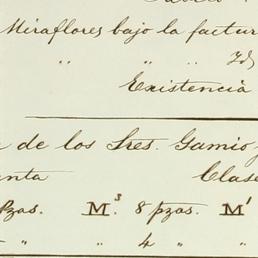 Miraflores bajo la factur
" " " Yd
Existencia
de los Sres. Gamio
nta Clase
Pzas. M³. 8 pzas. M¹
" " 4 " "